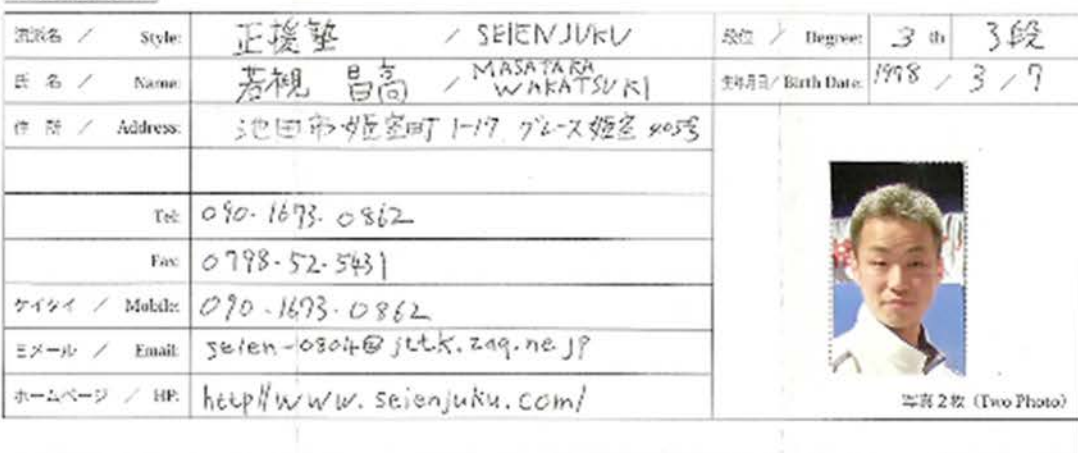 流派名 / Style: 正援塾 / SEIENJUKU 段位 / Degree: 3 th 3段
氏名 / Name: 若槻 昌高 / MASATAKA WAKATSUKI 生年月日 / Birth Date: 1998 / 3 / 7
住所 / Address: 池田市姫室町 1-17 グレース姫室 405号
Tel: 090-1673-0862
Fax: 0798-52-5431
ケイタイ / Mobile: 090-1673-0862
Eメール / Email: seien-0804@jttk.zaq.ne.jp
ホームページ / HP: http//www.seienjuku.com/
写真2枚 (Two Photo)